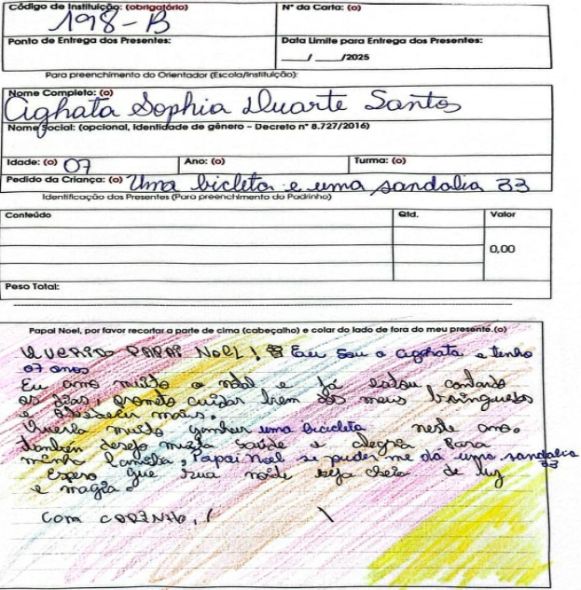 Código de Instituição: (obrigatório) Nº da Carta: (o)
198-B
Ponto de Entrega dos Presentes: Data Limite para Entrega dos Presentes:
___/ ___/2025
Para preenchimento do Orientador (Escola/Instituição):
Nome Completo: (o)
Aghata Sophia Duarte Santos
Nome Social: (opcional, identidade de gênero - Decreto nº 8.727/2016)
Idade: (o) 07 Ano: (o) Turma: (o)
Pedido da Criança: (o) Uma bicleta e uma sandalia 33
Identificação dos Presentes (Para preenchimento do Padrinho)
Conteúdo Qtd. Valor
0,00
Peso Total:
Papai Noel, por favor recortar a parte de cima (cabeçalho) e colar do lado de fora do meu presente.(o)
QUERIDO PAPAI NOEL! Eu sou a Aghata e tenho
07 anos
Eu amo muito o natal e já estou contando
os dias, prometo cuidar bem dos meus brinquedos
e obedecer mais.
Queria muito ganhar uma bicicleta neste ano.
também desejo muita saúde e alegria para
minha familia, Papai Noel si puder me dá uma sandalia
33
Espero que sua noite seja cheia de luz
e magia.
COM CARINHO, ( )